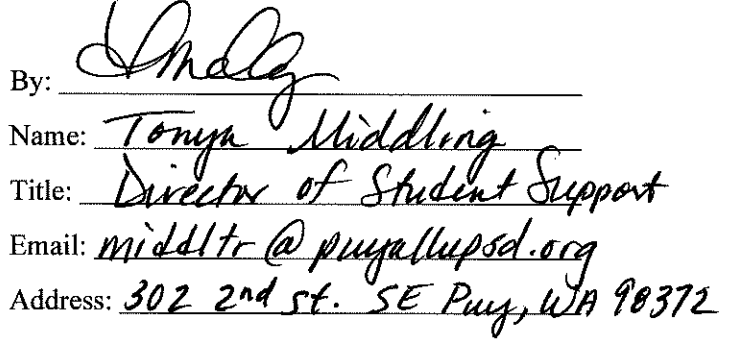 By:
Name: Tonya Middling
Title: Director of Student Support
Email: middltr@puyallupsd.org
Address: 302 2nd st. SE Puy, WA 98372